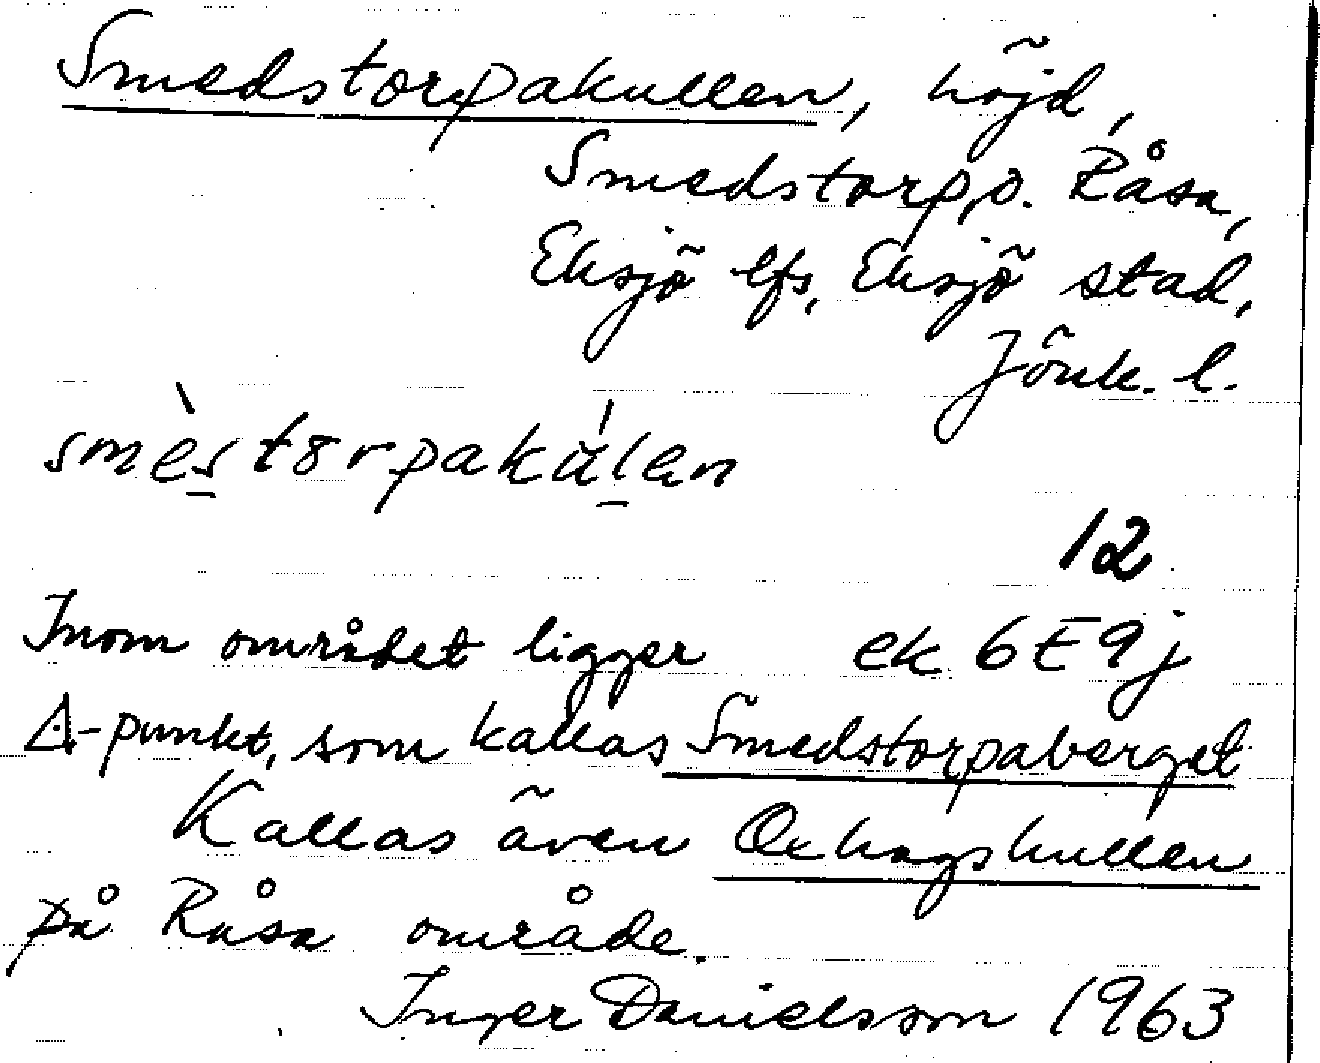 Smedstorpakullen, höjd,
Smedstorp o. Råsa,
Eksjö lfs, Eksjö stad,
Jönk. l.
smès tor pakúlen
12
Inom området ligger ek 6E9j
Δ-punkt, som kallas Smedstorpaberget
Kallas även Oxhagskullen
på Råsa område.
Inger Danielsson 1963